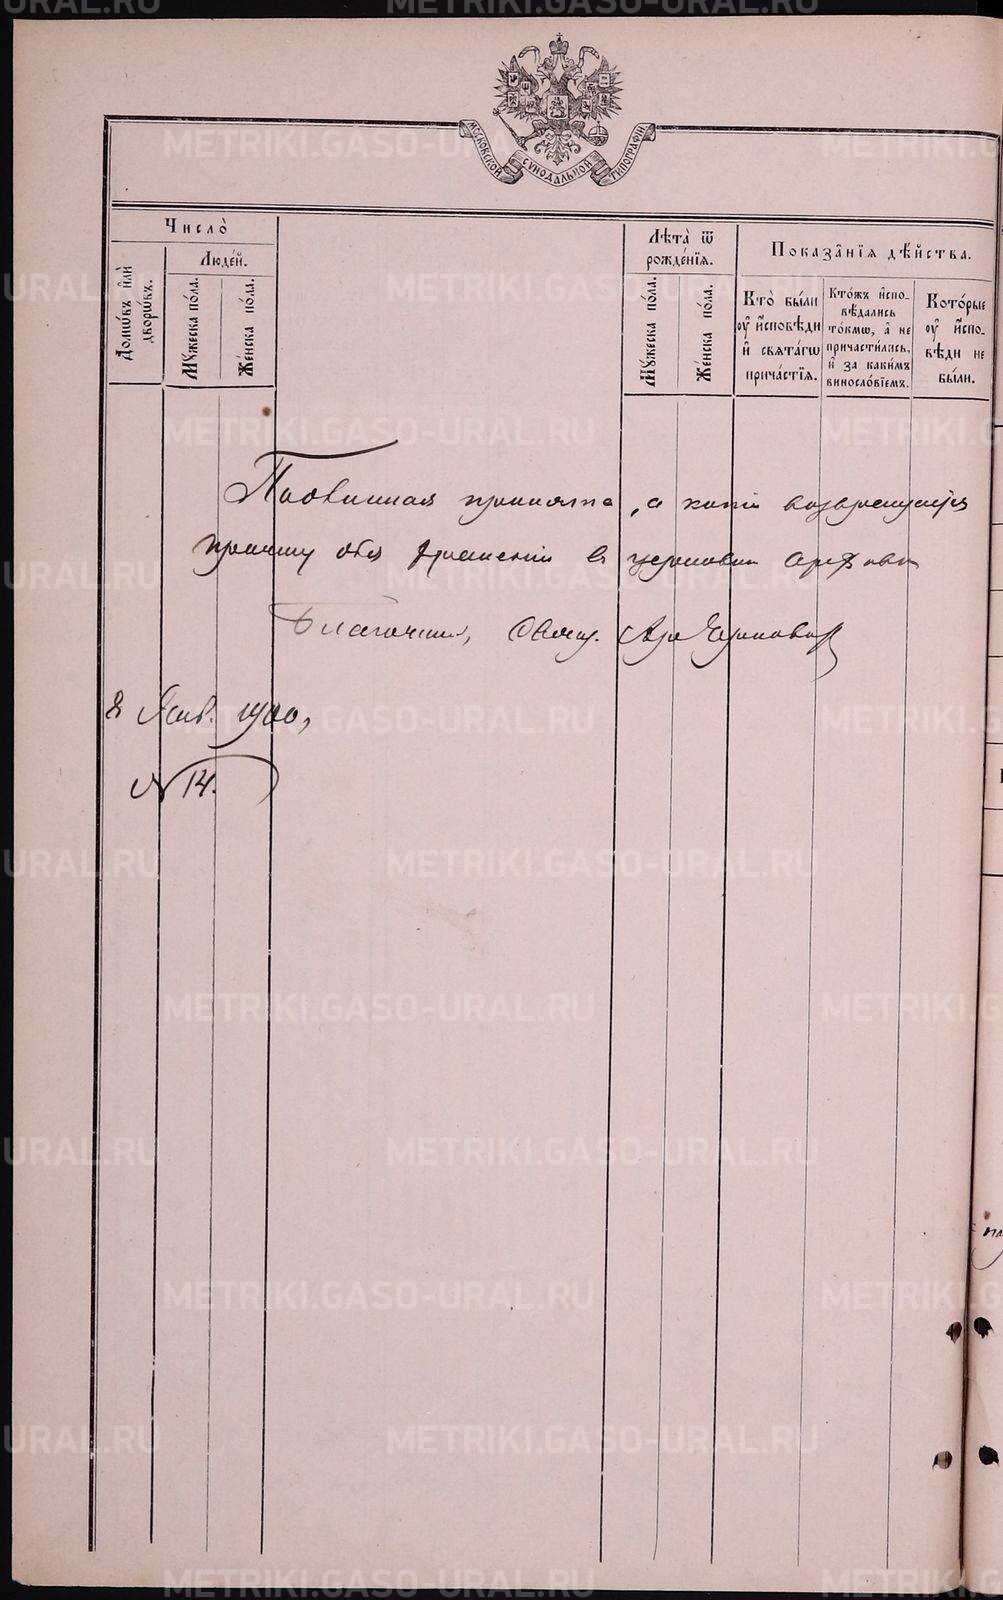 METRIKI.GASO-URAL.RU
МОСКОВСКОЙ СѴНОДАЛЬНОЙ ТИПОГРАФІИ
Число̀
Людéй.
Домѡ́въ и҆лѝ дворѡ́въ.
Мꙋ́жеска по́ла.
Же́нска по́ла.
Лѣта̀ ѿ рожде́нїѧ.
Мꙋ́жеска по́ла.
Же́нска по́ла.
Показа̑нїѧ дѣ́йства.
Кто̀ бы́ли
оу҆ и҆сповѣ́ди
и҆ свѧта́гѡ
прича́стїѧ.
Кто́жъ и҆спо-
вѣ́дались
то́кмѡ, а҆ не
причасти́лись,
и҆ за каки́мъ
винослові́емъ.
Кото́рые
оу҆ и҆спо-
вѣ́ди не
бы́ли.
Подлинная принята, а копія возвращается
причту для храненія в церковном архиве
Благочинный, Свящ.
8 Янв. 1900,
№ 14.